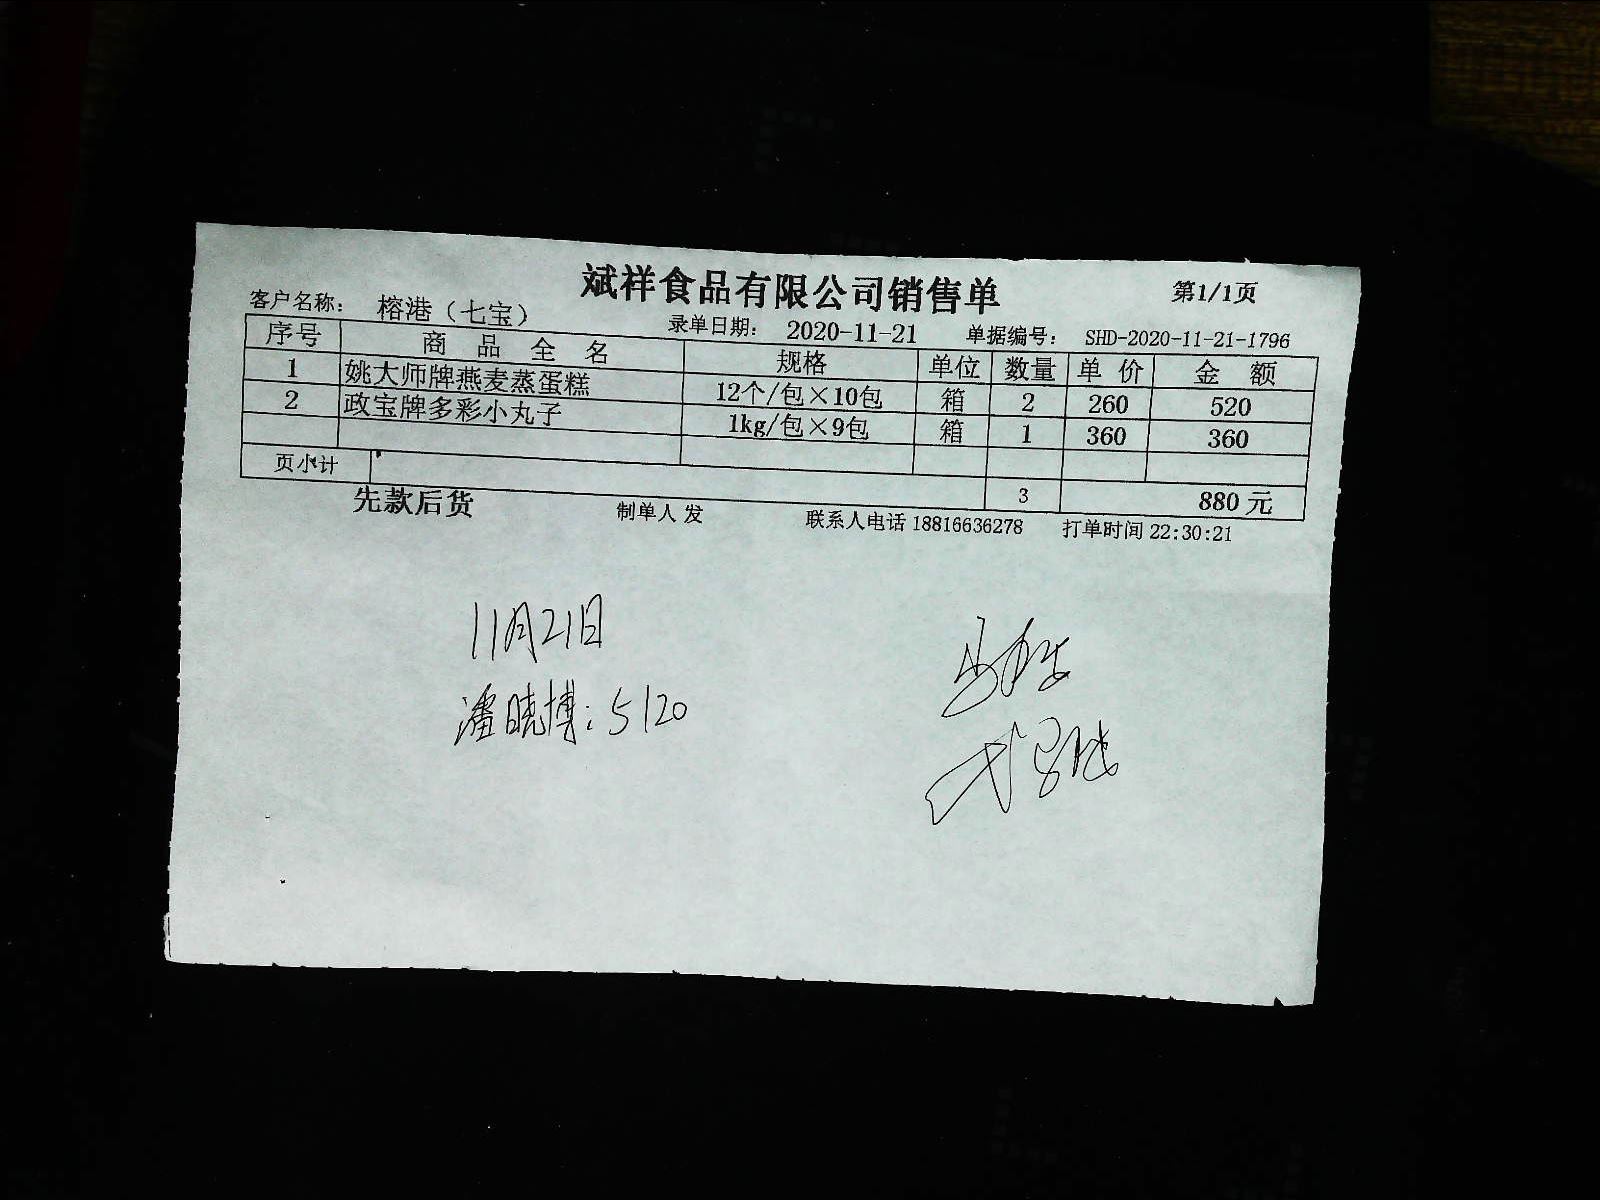 斌祥食品有限公司销售单 第1/1页
客户名称: 榕港（七宝） 录单日期: 2020-11-21 单据编号: SHD-2020-11-21-1796
序号 商品全名 规格 单位 数量 单价 金额
1 姚大师牌燕麦蒸蛋糕 12个/包×10包 箱 2 260 520
2 政宝牌多彩小丸子 1kg/包×9包 箱 1 360 360
页小计 3 880元
先款后货 制单人 发 联系人电话 18816636278 打单时间 22:30:21
11月21日
潘晓博: 5120